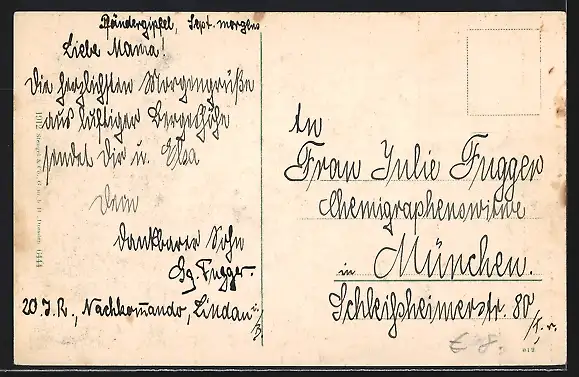 Pfändergipfel, Sept. morgens
Liebe Mama!
Die herzlichsten Morgengrüße
aus luftiger Bergeshöhe
sendet Dir u. Elsa
Dein
dankbarer Sohn
Gg. Fugger.
20. I. R., Nachkom̄ando, Lindau i/B.
1912 Stengel & Co., G. m. b. H., Dresden 6444
An
Frau Julie Fugger
Chemigraphenswitwe
in München.
Schleißheimerstr. 80
/I. r.
€ 8.